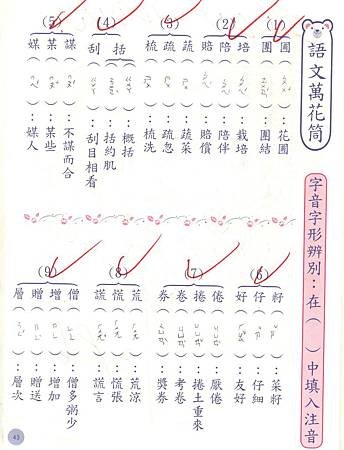 語文萬花筒
字音字形辨別：在（　）中填入注音
(1)
圃（　）：花圃
團（　）：團結
(2)
培（　）：栽培
陪（　）：陪伴
賠（　）：賠償
(3)
蔬（　）：蔬菜
疏（　）：疏忽
梳（　）：梳洗
(4)
括（　）：概括
（　）：括約肌
刮（　）：刮目相看
(5)
謀（　）：不謀而合
某（　）：某些
媒（　）：媒人
(6)
籽（　）：菜籽
仔（　）：仔細
好（　）：友好
(7)
倦（　）：厭倦
捲（　）：捲土重來
卷（　）：考卷
券（　）：獎券
(8)
荒（　）：荒涼
慌（　）：慌張
謊（　）：謊言
(9)
僧（　）：僧多粥少
增（　）：增加
贈（　）：贈送
層（　）：層次
43